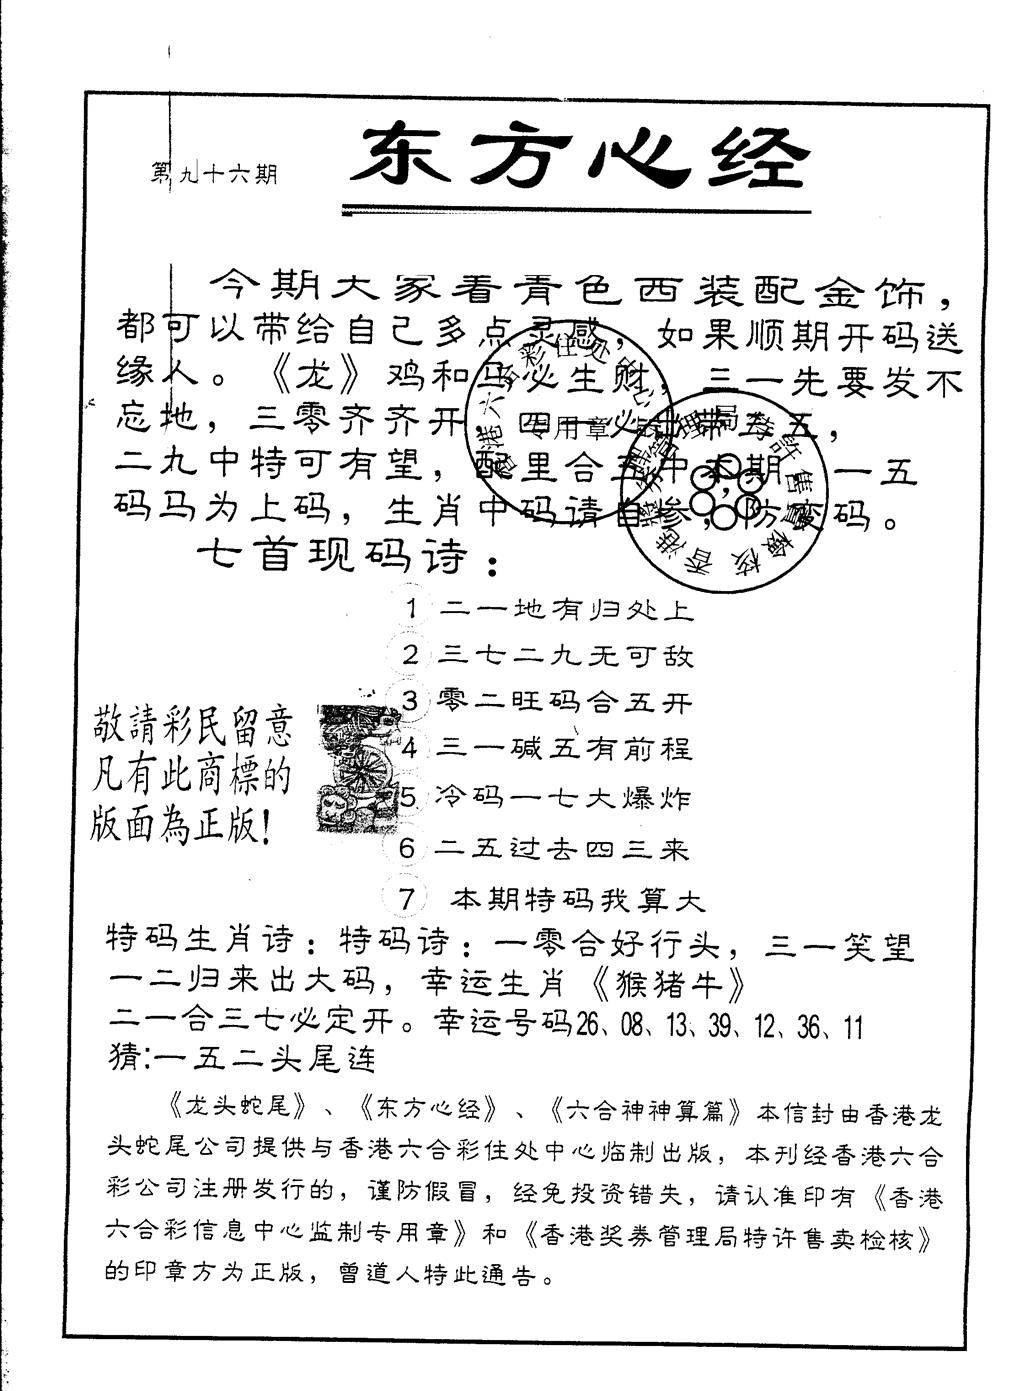 第九十六期
东方心经
今期大家看青色西装配金饰，
都可以带给自己多点灵感，如果顺期开码送
缘人。《龙》鸡和马必生财，三一先要发不
忘地，三零齐齐开，四一必出带三五，
二九中特可有望，配里合五中本期，一五
码马为上码，生肖中码请自参，防波码。
七首现码诗：
1 二一地有归处上
2 三七二九无可敌
3 零二旺码合五开
4 三一碱五有前程
5 冷码一七大爆炸
6 二五过去四三来
7 本期特码我算大
敬請彩民留意
凡有此商標的
版面為正版！
特码生肖诗：特码诗：一零合好行头，三一笑望
一二归来出大码，幸运生肖《猴猪牛》
二一合三七必定开。幸运号码26、08、13、39、12、36、11
猜:一五二头尾连
《龙头蛇尾》、《东方心经》、《六合神神算篇》本信封由香港龙
头蛇尾公司提供与香港六合彩住处中心临制出版，本刊经香港六合
彩公司注册发行的，谨防假冒，经免投资错失，请认准印有《香港
六合彩信息中心监制专用章》和《香港奖券管理局特许售卖检核》
的印章方为正版，曾道人特此通告。
专用章
香港奖券管理局特許售賣檢核